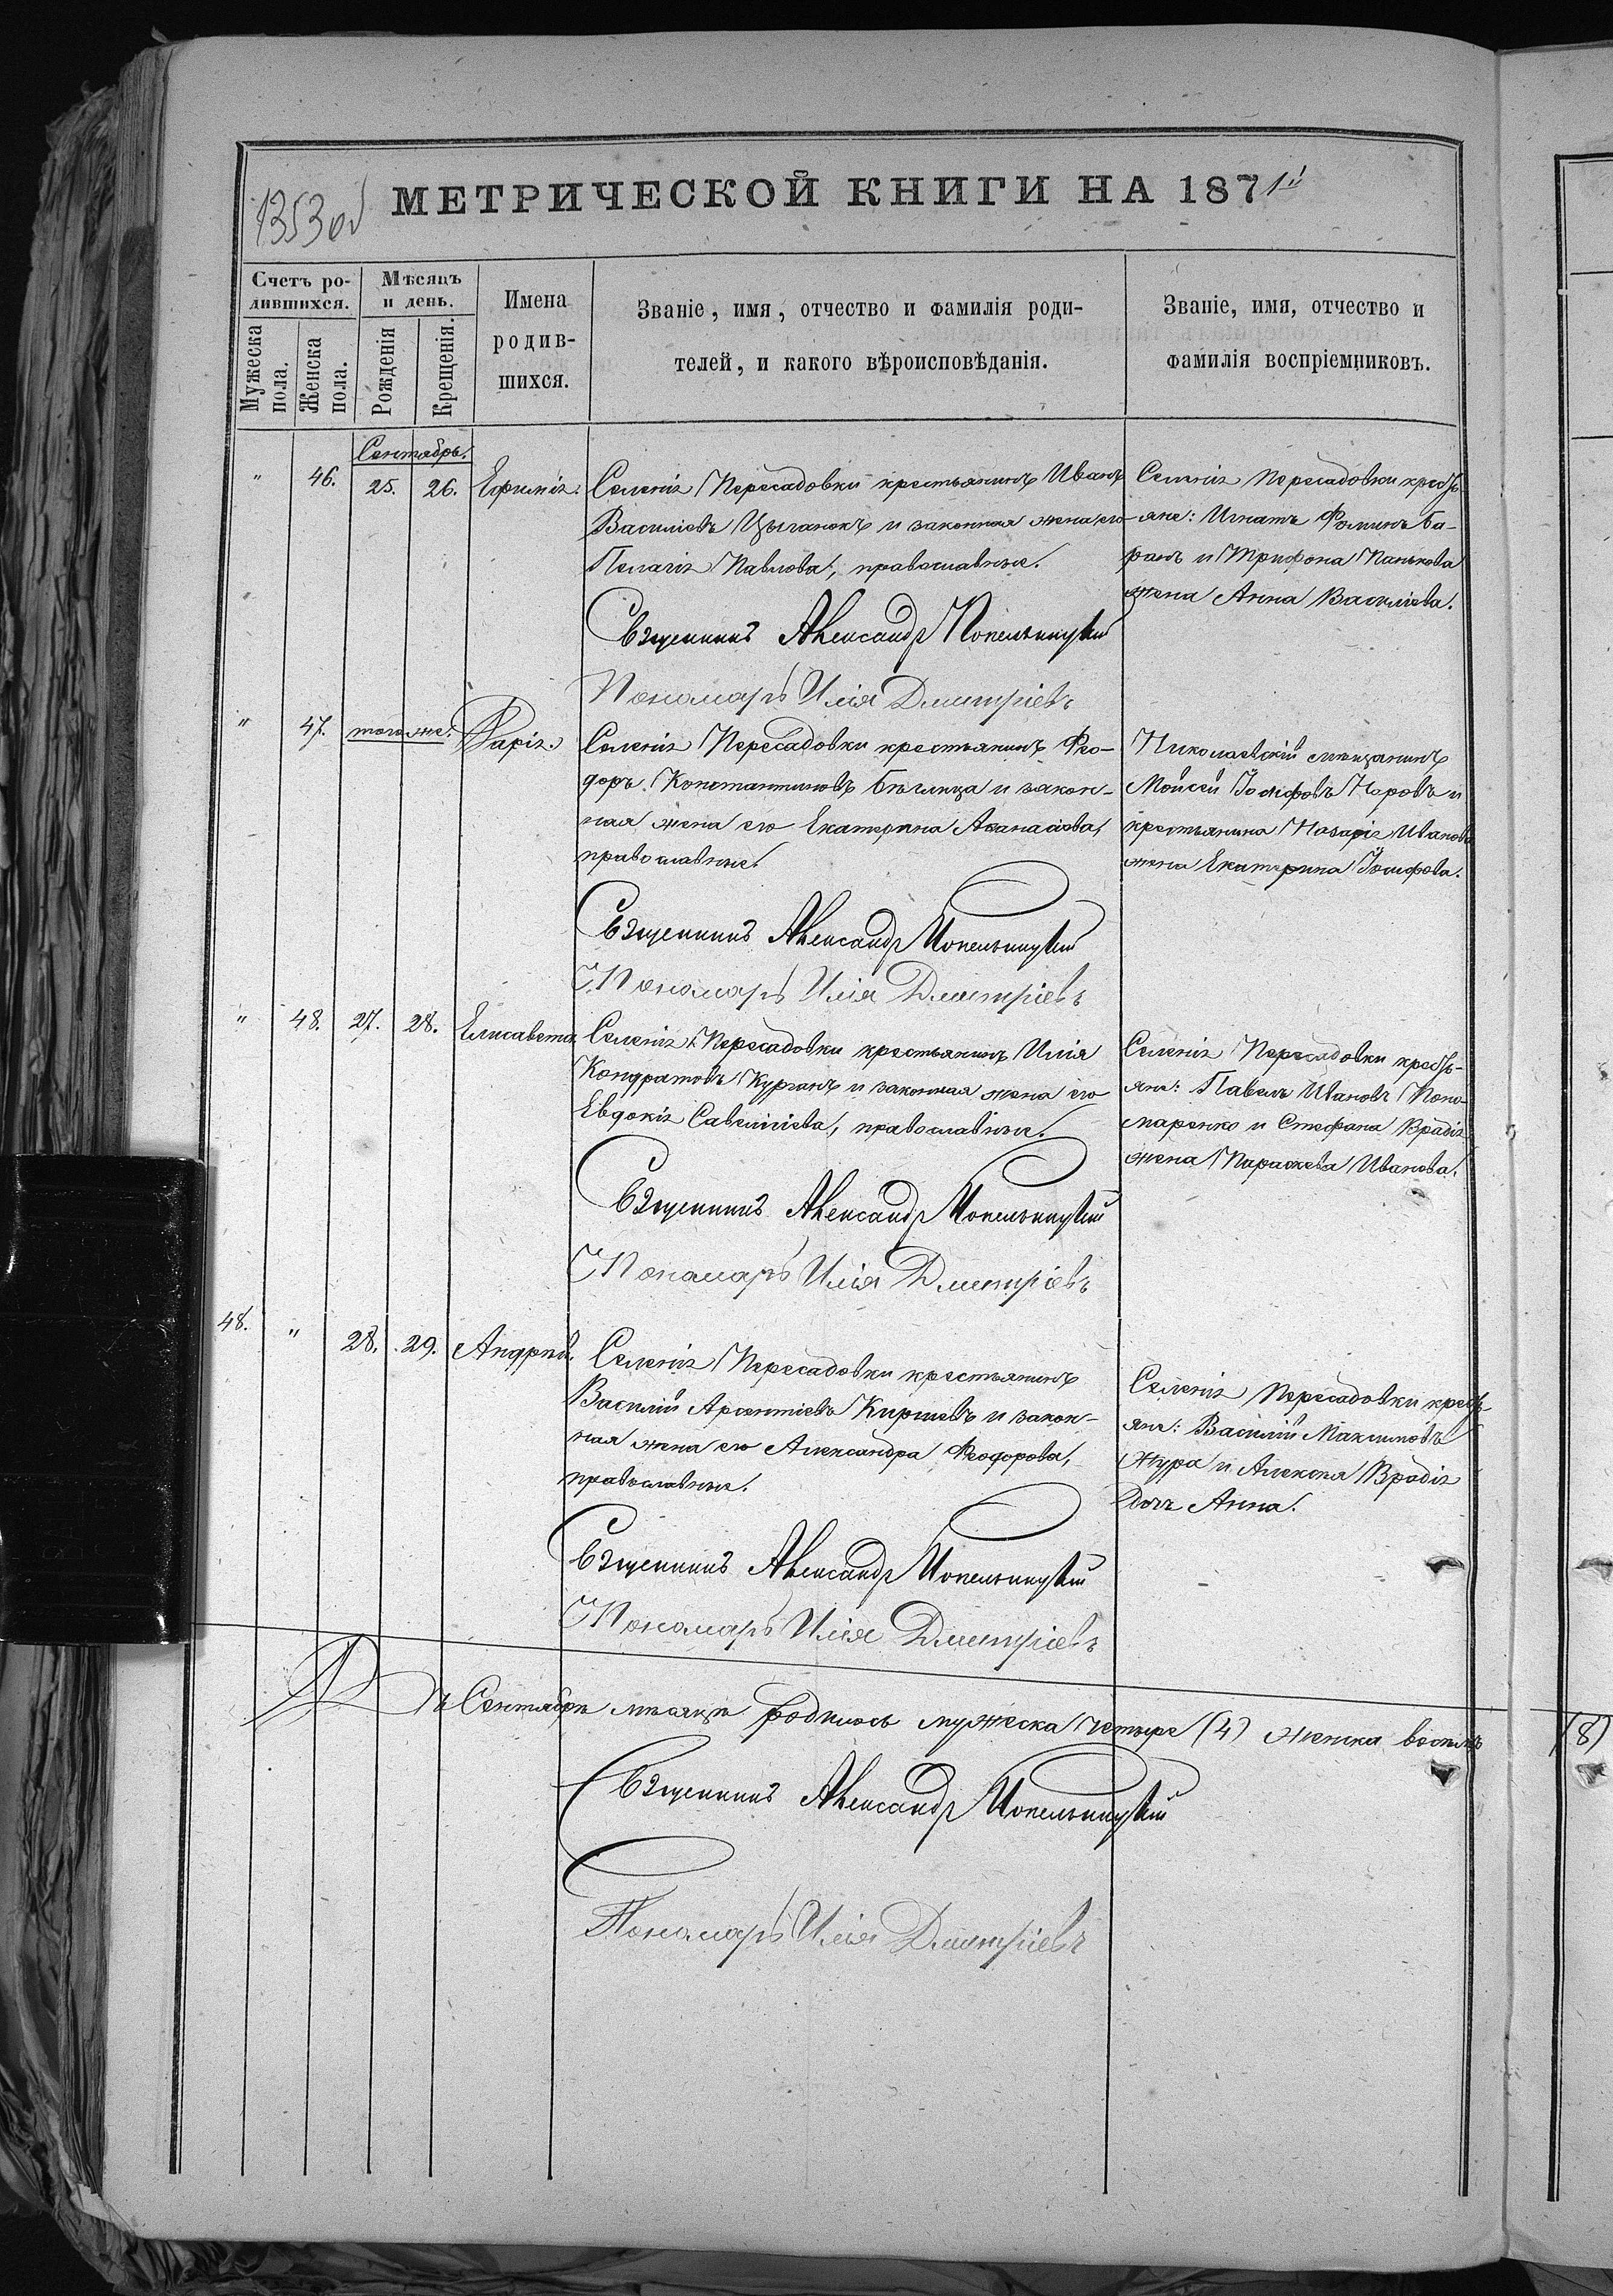 1353 об
МЕТРИЧЕСКОЙ КНИГИ НА 1871й
Счетъ ро-
дившихся.
Мужеска
пола.
Женска
пола.
Мѣсяцъ
и день.
Рожденія
Крещенія.
Имена
родив-
шихся.
Званіе, имя, отчество и фамилія роди-
телей, и какого вѣроисповѣданія.
Званіе, имя, отчество и
фамилія воспріемниковъ.
Сентябрь.
" 46. 25. 26. Ефимія.
Селенія Пересадовки крестьянинъ Иванъ
Василіевъ Цыганокъ и законная жена его
Пелагія Павлова, православные.
Священникъ Александръ Попельницкій
Пономарь Илія Димитріевъ
Селенія Пересадовки кресть-
яне: Игнатъ Фоминъ Ба-
ранъ и Трифона Панькова
жена Анна Василіева.
" 47. того же. Дарія.
Селенія Пересадовки крестьянинъ Фео-
доръ Константиновъ Бѣглица и закон-
ная жена его Екатерина Аѳанасіева,
православные.
Священникъ Александръ Попельницкій
Пономарь Илія Димитріевъ
Николаевскій мѣщанинъ
Мойсей Іосифовъ и
крестьянина Назарія Иванова
жена Екатерина Іосифова.
" 48. 27. 28. Елисавета.
Селенія Пересадовки крестьянинъ Илія
Кондратовъ Курганъ и законная жена его
Евдокія Савеліева, православные.
Священникъ Александръ Попельницкій
Пономарь Илія Димитріевъ
Селенія Пересадовки кресть-
яне: Павелъ Ивановъ Поно-
маренко и Стефана Врадія
жена Параскева Иванова.
48. " 28. 29. Андрей.
Селенія Пересадовки крестьянинъ
Василій Арсентіевъ Киріевъ и закон-
ная жена его Александра Феодорова,
православные.
Священникъ Александръ Попельницкій
Пономарь Илія Димитріевъ
Селенія Пересадовки кресть-
яне: Василій Максимовъ
Жура и Алексія Врадія
дочь Анна.
Въ Сентябрѣ мѣсяцѣ родилось мужеска четыре (4) женска восемь (8)
Священникъ Александръ Попельницкій
Пономарь Илія Димитріевъ